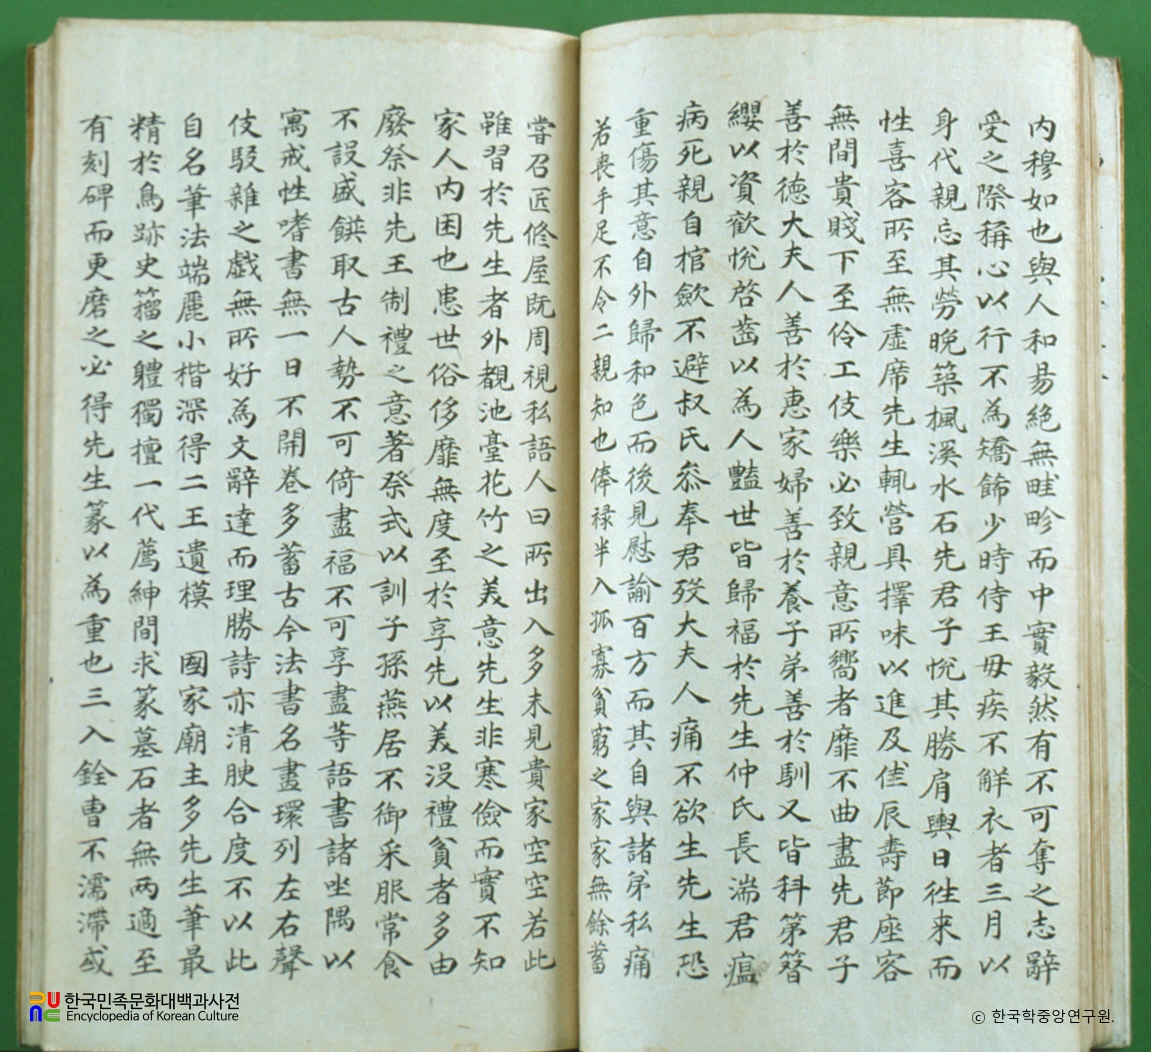 内穆如也與人和易絕無畦畛而中實毅然有不可奪之志辭
受之際稱心以行不為矯餙少時侍王母疾不解衣者三月以
身代親忘其勞晚築楓溪水石先君子悅其勝肩輿日徃来而
性喜客所至無虛席先生輒營具擇味以進及佳辰壽節座客
無間貴賤下至伶工伎樂必致親意所嚮者靡不曲盡先君子
善於德大夫人善於惠家婦善於養子弟善於馴又皆科第簪
纓以資歡悅啓齒以為人豔世皆歸福於先生仲氏長湍君瘟
病死親自棺歛不避叔氏叅奉君歿大夫人痛不欲生先生恐
重傷其意自外歸和色而後見慰諭百方而其自與諸弟私痛
若喪手足不令二親知也俸祿半入孤寡貧窮之家家無餘蓄
嘗召匠修屋既周視私語人曰所出入多未見貴家空空若此
雖習於先生者外覩池臺花竹之美意先生非寒儉而實不知
家人内困也患世俗侈靡無度至於享先以美没禮貧者多由
廢祭非先王制禮之意著祭式以訓子孫燕居不御采服常食
不設盛饌取古人勢不可倚盡福不可享盡等語書諸坐隅以
寓戒性嗜書無一日不開卷多蓄古今法書名畫環列左右聲
伎駁雜之戱無所好為文辭達而理勝詩亦清腴合度不以此
自名筆法端麗小楷深得二王遺模 國家廟主多先生筆最
精於鳥跡史籒之軆獨擅一代薦紳間求篆墓石者無兩適至
有刻碑而更磨之必得先生篆以為重也三入銓曹不濡滯或
한국민족문화대백과사전
Encyclopedia of Korean Culture
ⓒ 한국학중앙연구원.